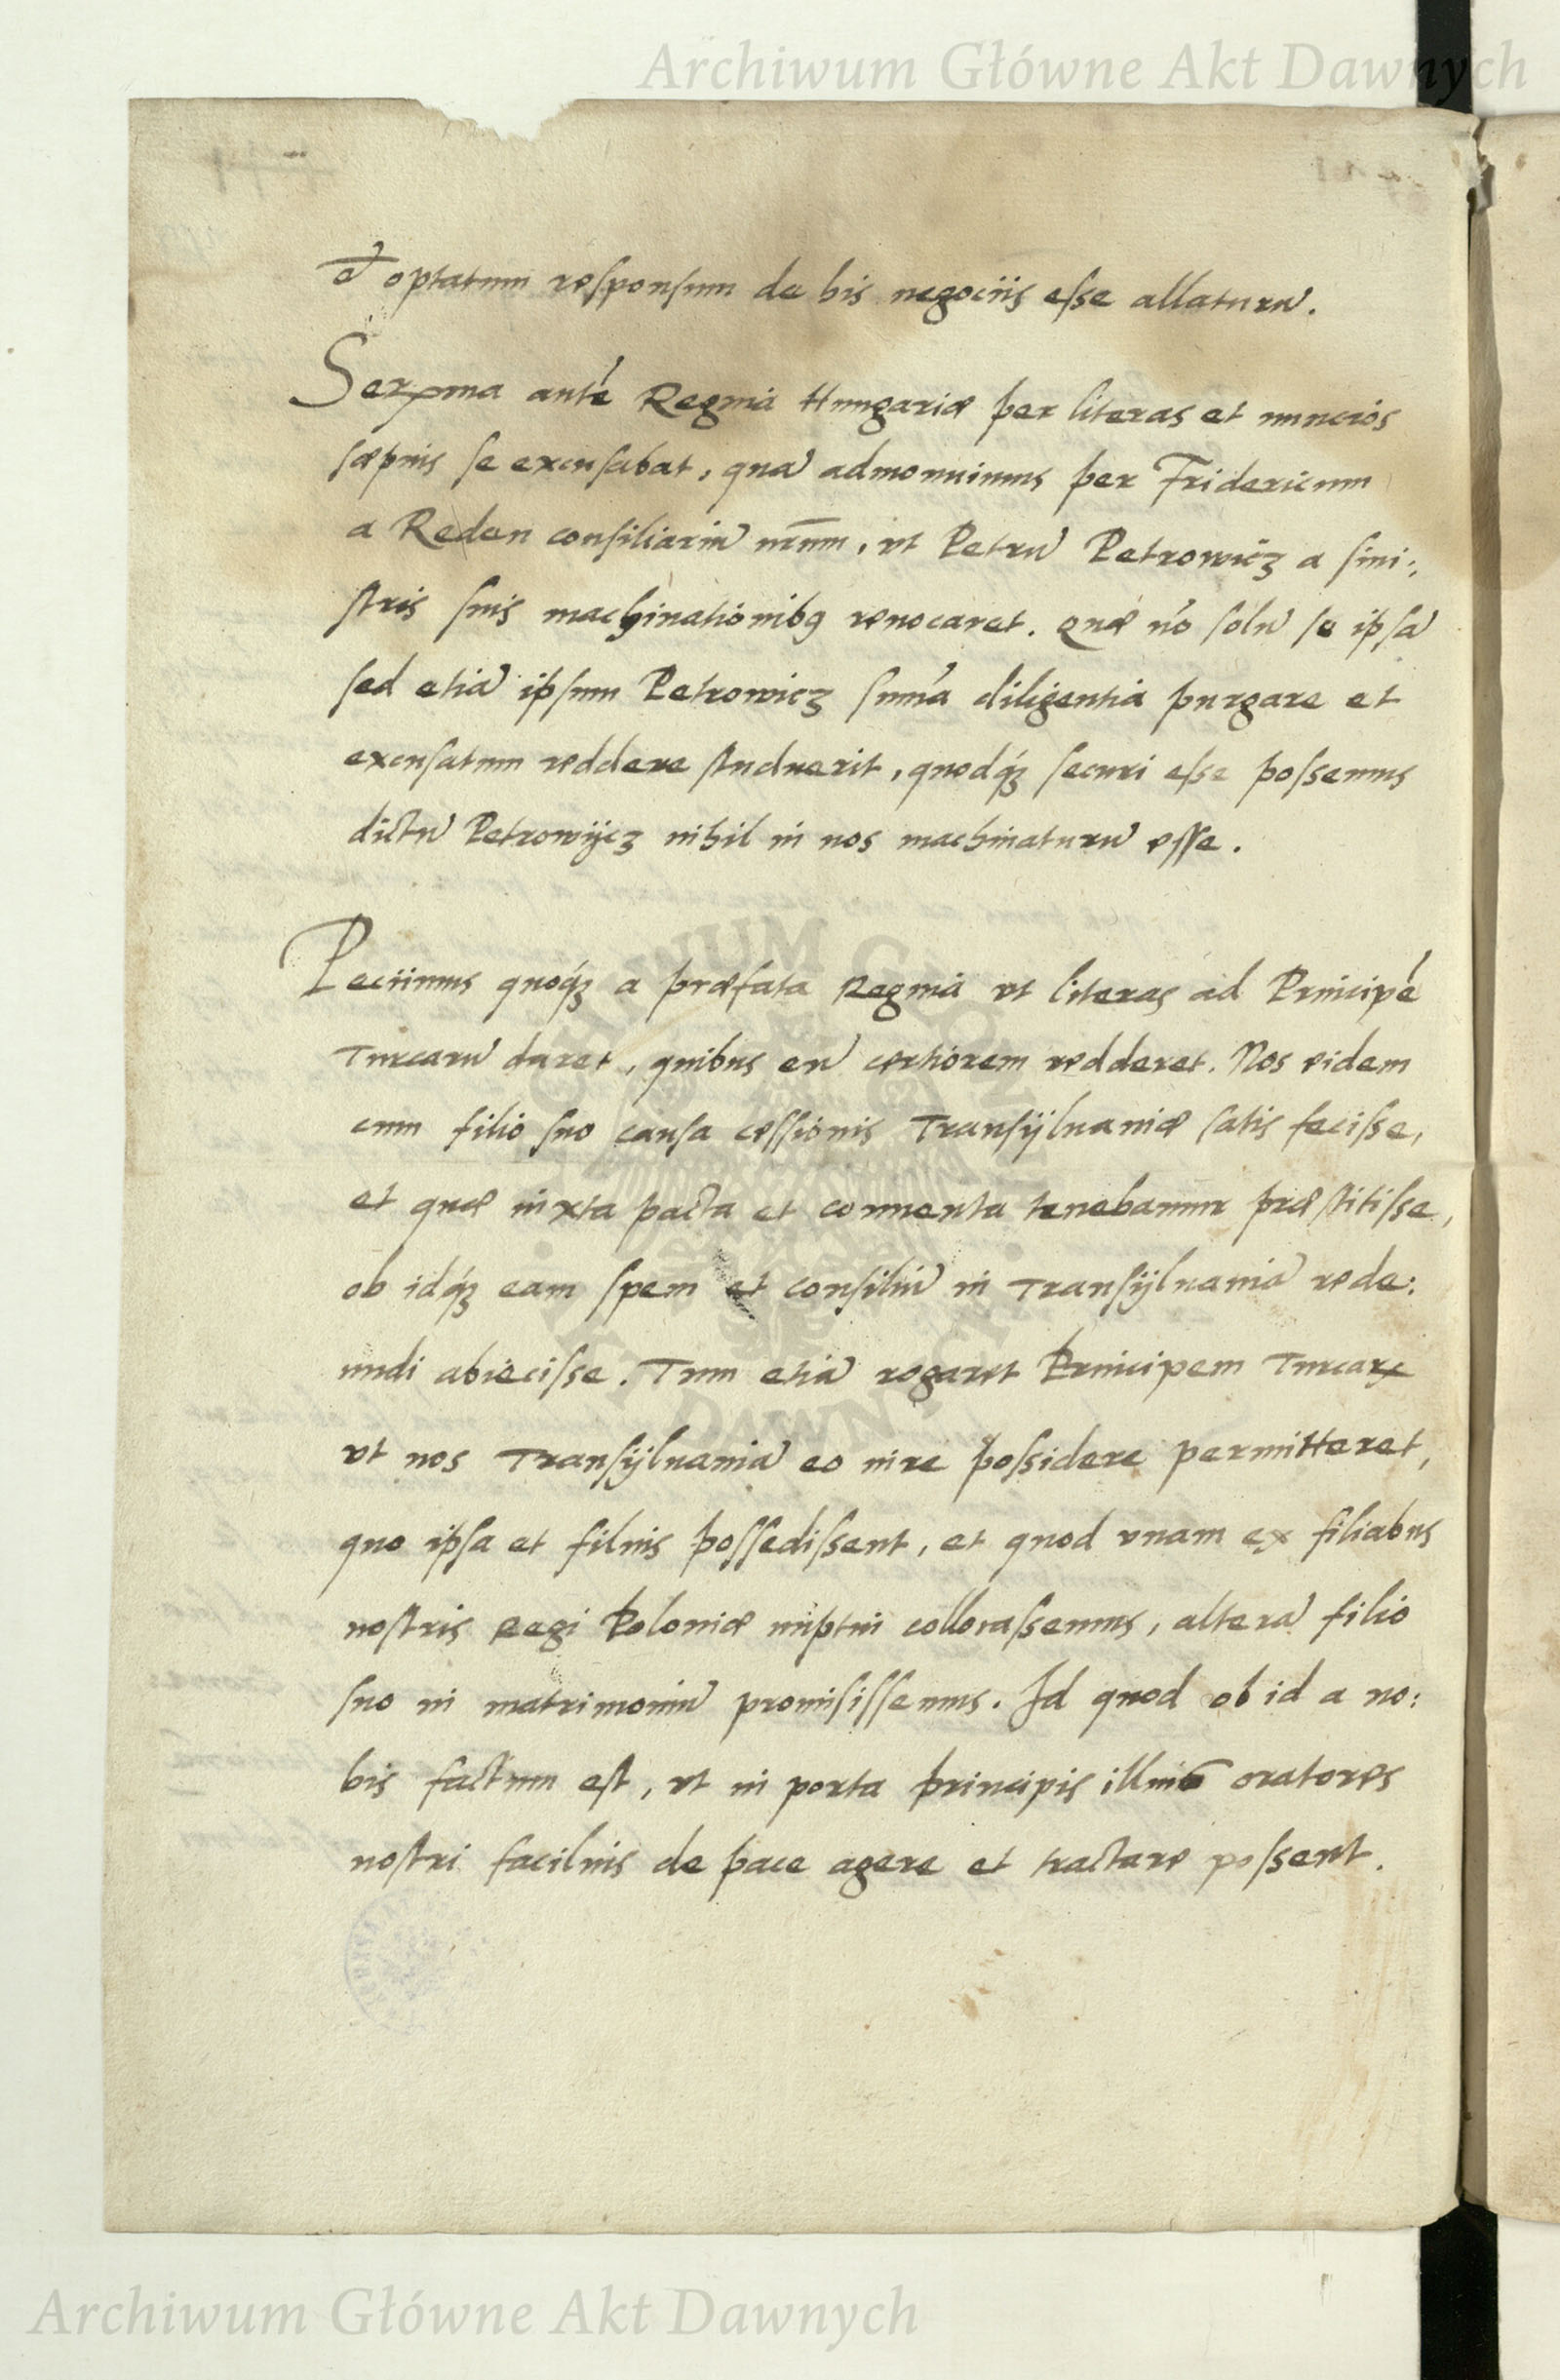 Archiwum Główne Akt Dawnych
et optatum responsum de his negociis esse allaturũ.
Serma autẽ Regina Hungariæ per literas et nuncios
sæpius se excusabat, quã admonuimus per Fridericum
a Reden consiliariũ nr̃um, vt Petrũ Petrowicz a sini:
stris suis machinationibꝯ reuocaret. Quæ nõ solũ se ipsã
sed etiã ipsum Petrowicz sum̃a diligentia purgare et
excusatum reddere studuerit, quodq́ꝫ securi esse possemus
dictũ Petrowijcz nihil in nos machinaturũ esse.
Peciimus quoq́ꝫ a præfata Regina vt literas ad Principẽ
Turcarũ daret, quibus eũ certiorem redderet. Nos eidem
cum filio suo causa cessionis Transÿluaniæ satis fecisse,
et quæ iuxta pacta et conuenta tenebamur præstitisse,
ob idq́ꝫ eam spem et consiliũ in Transÿluaniã rede:
undi abiecisse. Tum etiã rogaret Principem Turcaꝝ
vt nos Transÿluaniã eo iure possidere permitteret,
quo ipsa et filius possedissent, et quod vnam ex filiabus
nostris Regi Poloniæ nuptui collocassemus, alterã filio
suo in matrimoniũ promisissemus. Id quod ob id a no:
bis factum est, vt in porta principis illius oratores
nostri facilius de pace agere et tractare possent.
ARCHIWUM GŁÓWNE AKT DAWNYCH
Archiwum Główne Akt Dawnych